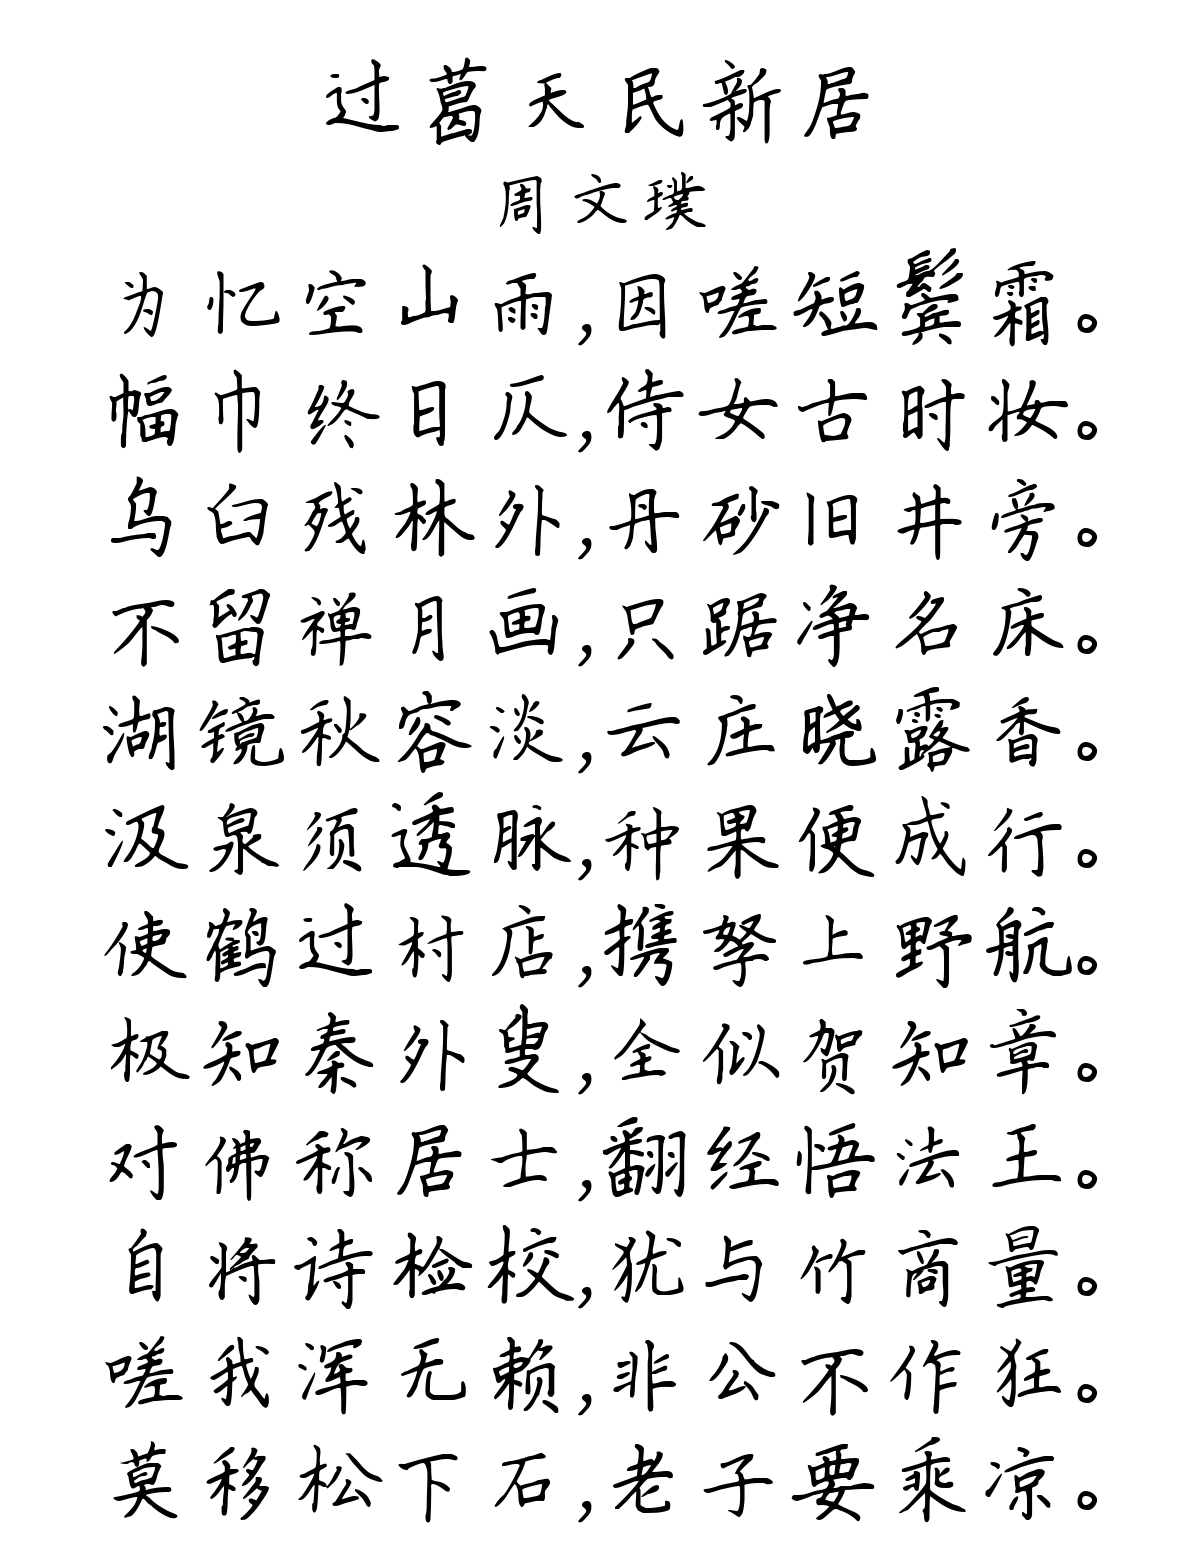 过葛天民新居
周文璞
为忆空山雨,因嗟短鬓霜。
幅巾终日仄,侍女古时妆。
乌臼残林外,丹砂旧井旁。
不留禅月画,只踞净名床。
湖镜秋容淡,云庄晓露香。
汲泉须透脉,种果便成行。
使鹤过村店,携孥上野航。
极知秦外叟,全似贺知章。
对佛称居士,翻经悟法王。
自将诗检校,犹与竹商量。
嗟我浑无赖,非公不作狂。
莫移松下石,老子要乘凉。